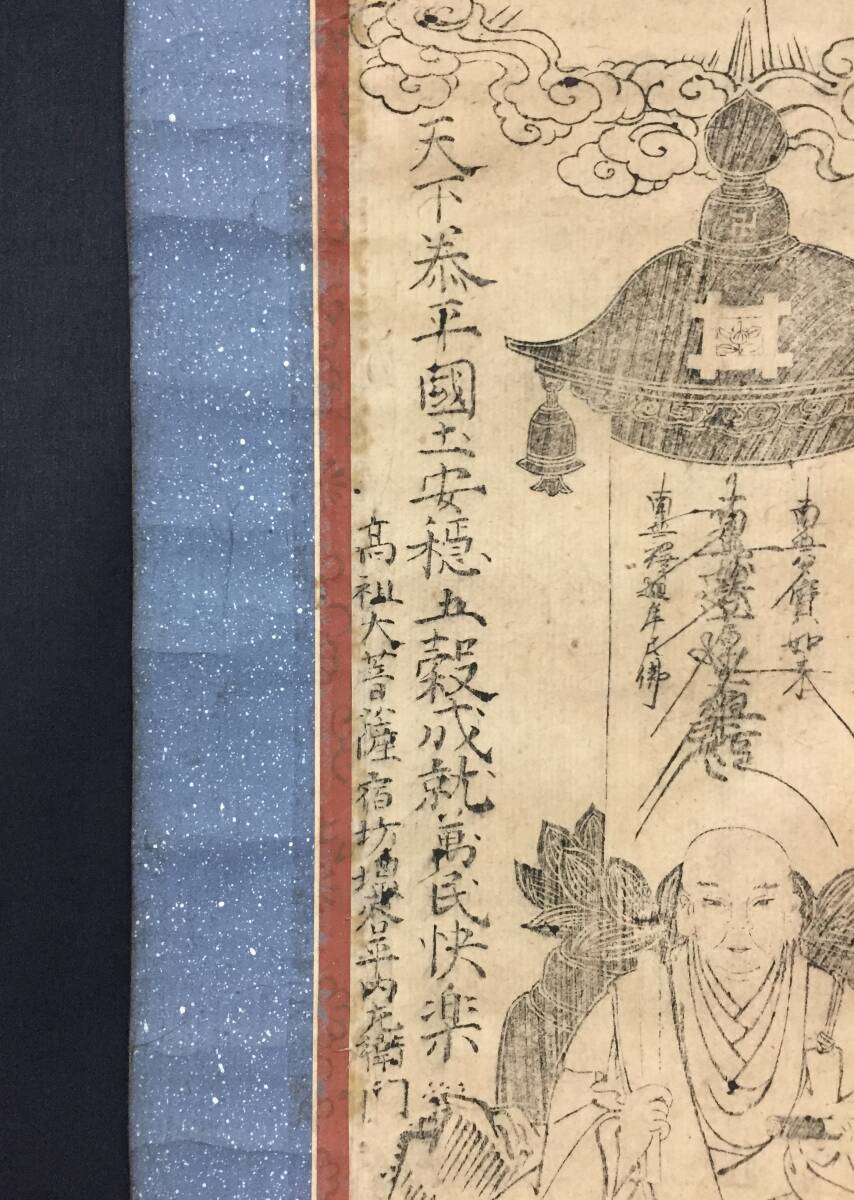 南無多寶如来
南無妙法蓮華經
南無釋迦牟尼佛
天下泰平國土安穏五穀成就萬民快楽
高祖大菩薩宿坊塩谷平内左衛門